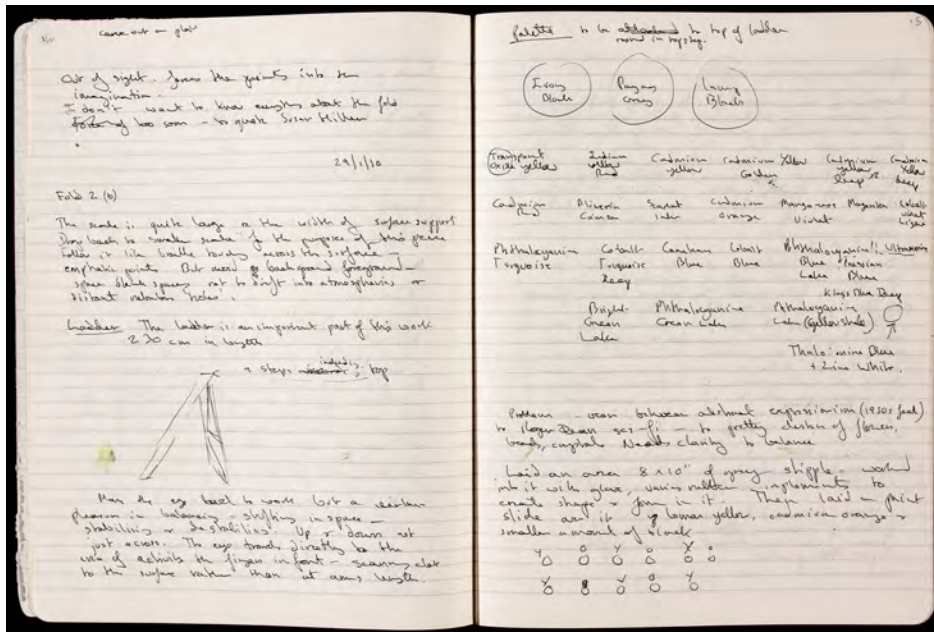 came out on play
Out of sight. forces the points into the
imagination.
I don't want to know everything about the fold
too soon - to quote Susan Hiller
29/1/10
Fold 2 (b)
The scale is quite large in the width of surface support
Drop back to smaller scale for the purposes of this piece
Follow it like breathe across the surface -
emphatic points. But avoid background foreground -
space blank spaces not to drift into atmospherics or
distant holes.
Ladder The ladder is an important part of this work
230 cm in length
9 steps including top
the eye back to work but a certain
pleasure in balancing - shifting in space -
stabilising & destabilising. Up & down not
just across. The eye travels directly to the
area of activity the finger in front - scanning close
to the surface rather than at arms length.
Palette to be to top of ladder
in top step.
Ivory Black
Paynes Grey
Black
Transparent oxide yellow
Indian yellow Red
Cadmium yellow
Cadmium Yellow Golden
Cadmium yellow deep
Cadmium Yellow Deep
Cadmium Red
Alizarin Crimson
Scarlet Lake
Cadmium Orange
Manganese Violet
Magenta
Cobalt violet Light
Phthalocyanin Turquoise
Cobalt Turquoise Deep
Cerulean Blue
Cobalt Blue
Phthalocyanine Blue Lake
Prussian Blue
Ultramarine
Kings Blue Deep
Bright Green Lake
Phthalocyanine Green Lake
Phthalocyanine Lake (yellow shade)
Thalo: mine Blue
+ Zinc White.
Problem - between abstract expressionism (1950s feel)
to Roger Dean sci-fi - to pretty clusters of flowers,
beads, crystals Needs clarity to balance
Laid an area 8 x 10" of grey stipple - worked
into it with glove, various rubber implements to
create shape & form in it. Then laid in paint
slide over it yellow, cadmium orange &
smaller amount of black
Y O Y O Y O
Y B Y O Y